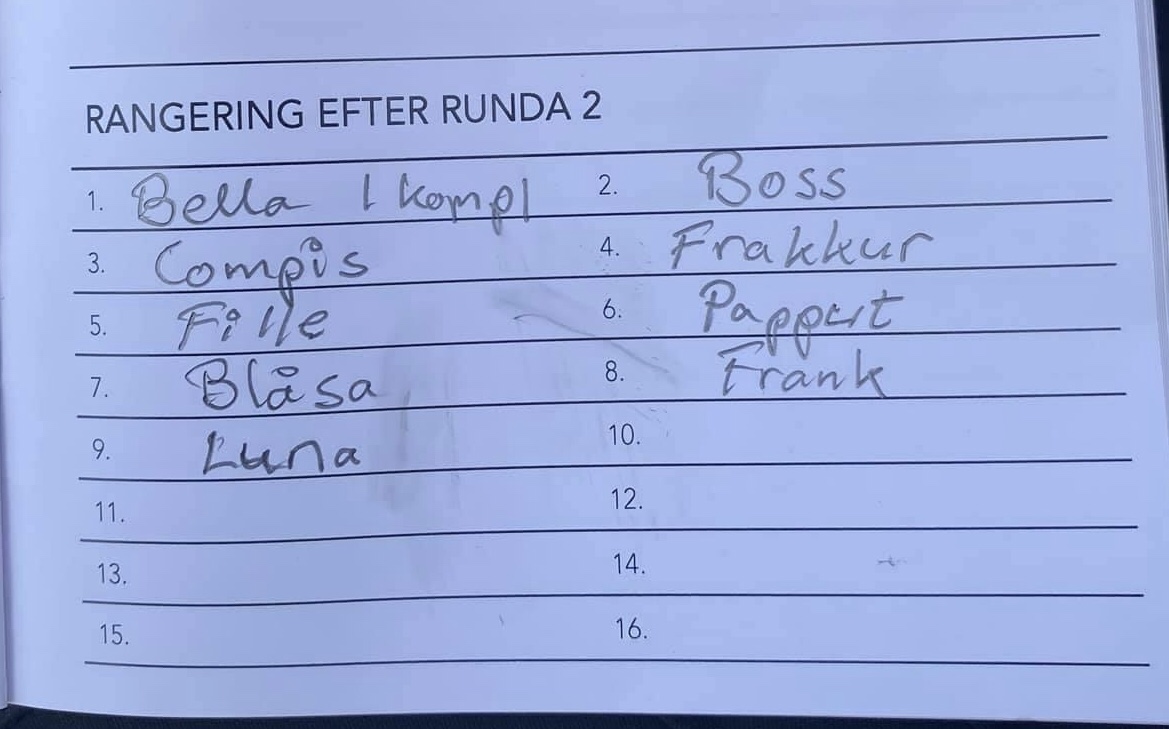 RANGERING EFTER RUNDA 2
1. Bella 1 kompl 2. Boss
3. Compis 4. Frakkur
5. Fille 6. Papput
7. Blåsa 8. Frank
9. Luna 10.
11. 12.
13. 14.
15. 16.